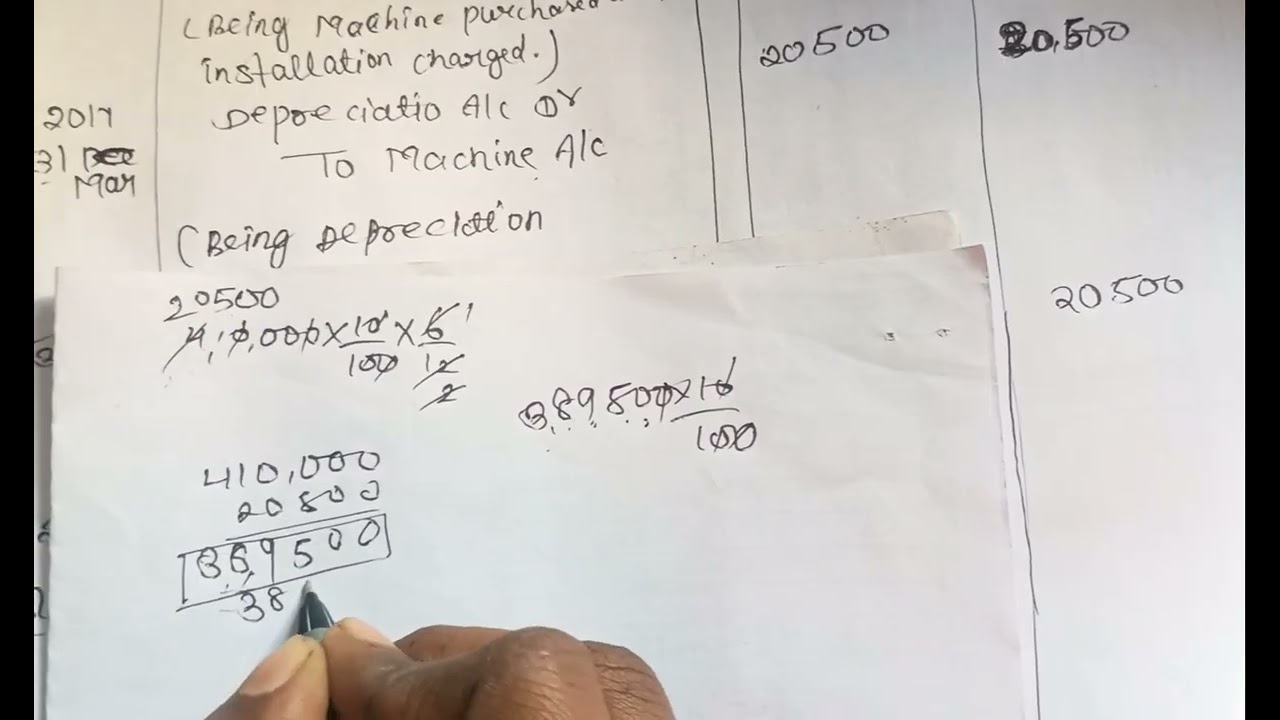 (Being Machine purchased
installation charged.)
20500
20,500
2017
31 Dec
Mar
Depreciatio A/c Dr
To Machine A/c
(Being Depreciation
20500
20500
4,10,000×10/100×6/12 1
2
389500×10/100
410,000
20500
369500
38